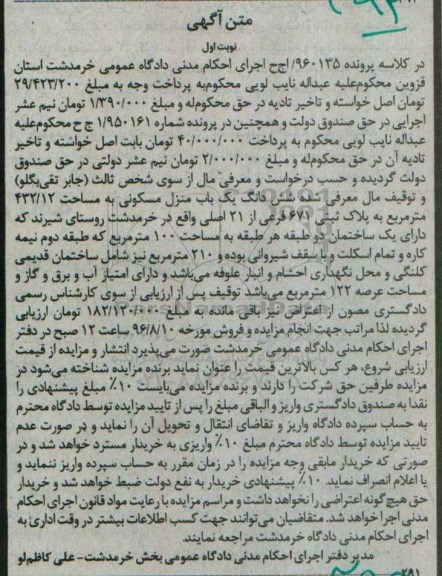 متن آگهی
نوبت اول
در کلاسه پرونده ۹۶۰۱۳۵/ اج‌ح اجرای احکام مدنی دادگاه عمومی خرمدشت استان
قزوین محکوم‌علیه عبداله نایب لویی محکوم‌به پرداخت وجه به مبلغ ۲۹/۴۲۳/۲۰۰
تومان اصل خواسته و تاخیر تادیه در حق محکوم‌له و مبلغ ۱/۳۹۰/۰۰۰ تومان نیم عشر
اجرایی در حق صندوق دولت و همچنین در پرونده شماره ۱/۹۵۰۱۶۱ ج ح محکوم‌علیه
عبداله نایب لویی محکوم به پرداخت ۴۰/۰۰۰/۰۰۰ تومان بابت اصل خواشته و تاخیر
تادیه آن در حق محکوم‌له و مبلغ ۲/۰۰۰/۰۰۰ تومان نیم عشر دولتی در حق صندوق
دولت گردیده و حسب درخواست و معرفی مال از سوی شخص ثالث (جابر تقی‌بگلو)
و توقیف مال معرفی شده شش دانگ یک باب منزل مسکونی به مساحت ۴۳۲/۱۲
مترمربع به پلاک ثبتی ۶۷۱ فرعی از ۲۱ اصلی واقع در خرمدشت روستای شیزند که
دارای یک ساختمان دو طبقه هر طبقه به مساحت ۱۰۰ مترمربع که طبقه دوم نیمه
کاره و تمام اسکلت و با سقف شیروانی بوده و ۲۱۰ مترمربع نیز شامل ساختمان قدیمی
کلنگی و محل نگهداری احشام و انبار علوفه می‌باشد و دارای امتیاز آب و برق و گاز و
مساحت عرصه ۱۲۲ مترمربع می‌باشد توقیف پس از ارزیابی از سوی کارشناس رسمی
دادگستری مصون از اعتراض نیز باقی مانده به مبلغ تومان ارزیابی
گردیده لذا مراتب جهت انجام مزایده و فروش مورخه ۹۶/۸/۱۰ ساعت ۱۲ صبح در دفتر
اجرای احکام مدنی دادگاه عمومی خرمدشت صورت می‌پذیرد انتشار و مزایده از قیمت
ارزیابی شروع، هر کس بالاترین قیمت را عنوان نماید برنده مزایده شناخته می‌شود در
مزایده طرفین حق شرکت را دارند و برنده مزایده می‌بایست ۱۰٪ مبلغ پیشنهادی را
نقدا به صندوق دادگستری واریز و الباقی مبلغ را پس از تایید مزایده توسط دادگاه محترم
به حساب سپرده دادگاه واریز و تقاضای انتقال و تحویل آن را نماید و در صورت عدم
تایید مزایده توسط دادگاه محترم مبلغ ۱۰٪ واریزی به خریدار مسترد خواهد شد و در
صورتی که خریدار مابقی وجه مزایده را در زمان مقرر به حساب سپرده واریز ننماید و
یا اعلام انصراف نماید. ۱۰٪ پیشنهادی خریدار به نفع دولت ضبط خواهد شد و خریدار
حق هیچ‌گونه اعتراضی را نخواهد داشت و مراسم مزایده با رعایت مواد قانون اجرای احکام
مدنی اجرا خواهد شد. متقاضیان می‌توانند جهت کسب اطلاعات بیشتر در وقت اداری به
اجرای احکام دادگاه خرمدشت مراجعه نمایند.
مدیر دفتر اجرای احکام مدنی دادگاه عمومی بخش خرمدشت- علی کاظم‌لو